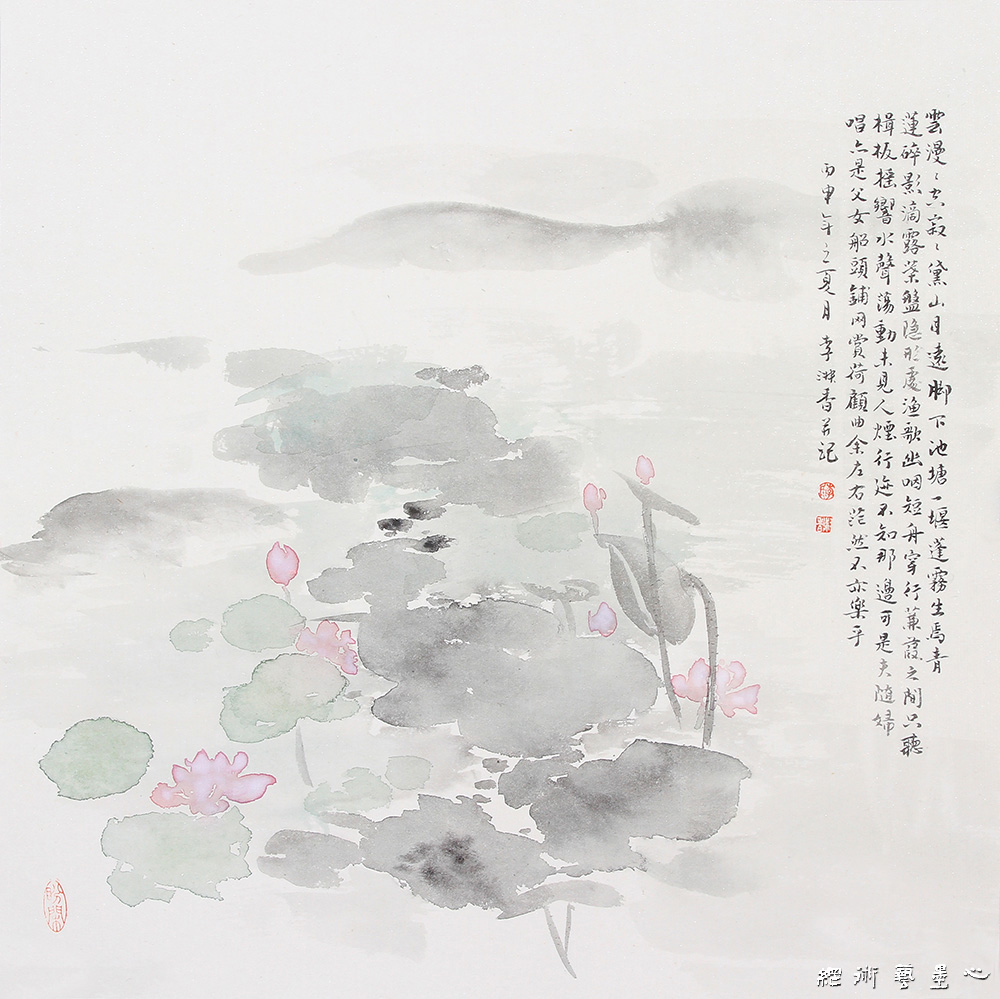 雲漫〻空寂〻黛山目遠腳下池塘一堰蓬霧生焉青
蓮碎影滴露葉盤隐形處渔歌幽咽短舟穿行蒹葭之間只聽
楫板摇響水聲蕩動未見人煙行迹不知那邊可是夫随婦
唱亦是父女船頭鋪网賞荷顧曲余左右茫然不亦樂乎
丙申年之夏月李淑香并記
心墨藝術网